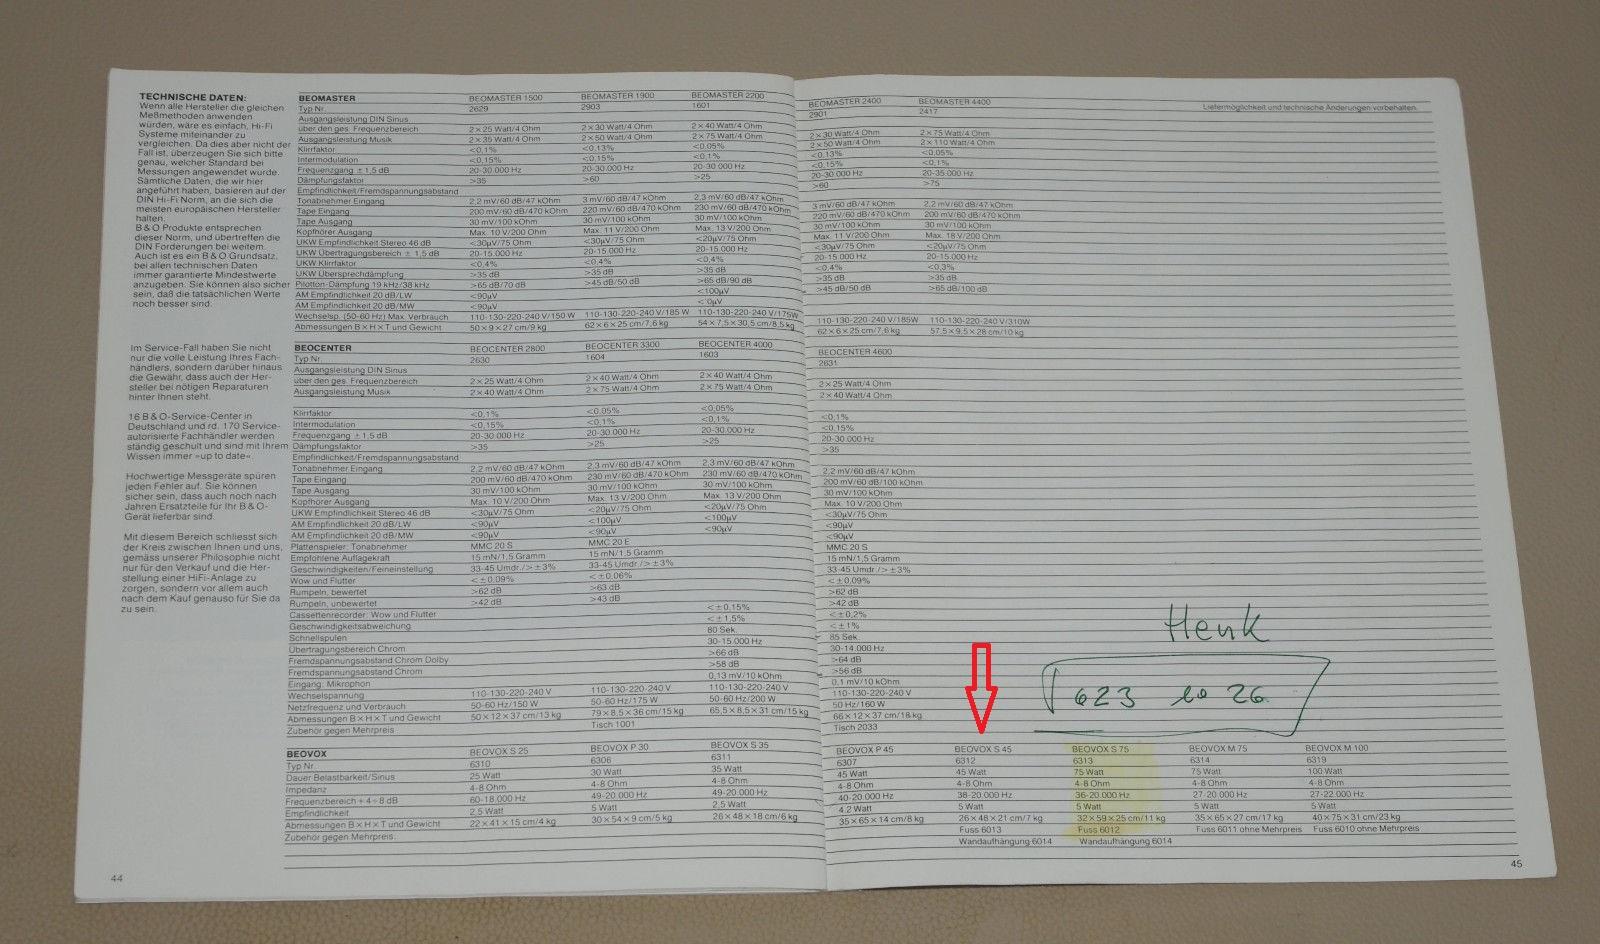 TECHNISCHE DATEN:
Wenn alle Hersteller die gleichen
Meßmethoden anwenden
würden, wäre es einfach, Hi-Fi
Systeme miteinander zu
vergleichen. Da dies aber nicht der
Fall ist, überzeugen Sie sich bitte
genau, welcher Standard bei
Messungen angewendet wurde.
Sämtliche Daten, die wir hier
angeführt haben, basieren auf der
DIN Hi-Fi Norm, an die sich die
meisten europäischen Hersteller
halten.
B & O Produkte entsprechen
dieser Norm, und übertreffen die
DIN Forderungen bei weitem.
Auch ist es ein B & O Grundsatz,
bei allen technischen Daten
immer garantierte Mindestwerte
anzugeben. Sie können also sicher
sein, daß die tatsächlichen Werte
noch besser sind.
Im Service-Fall haben Sie nicht
nur die volle Leistung Ihres Fach-
händlers, sondern darüber hinaus
die Gewähr, dass auch der Her-
steller bei nötigen Reparaturen
hinter Ihnen steht.
16 B & O-Service-Center in
Deutschland und rd. 170 Service-
autorisierte Fachhändler werden
ständig geschult und sind mit Ihrem
Wissen immer »up to date«.
Hochwertige Messgeräte spüren
jeden Fehler auf. Sie können
sicher sein, dass auch noch nach
Jahren Ersatzteile für Ihr B & O-
Gerät lieferbar sind.
Mit diesem Bereich schliesst sich
der Kreis zwischen Ihnen und uns,
gemäss unserer Philosophie nicht
nur für den Verkauf und die Her-
stellung einer HiFi-Anlage zu
sorgen, sondern vor allem auch
nach dem Kauf genauso für Sie da
zu sein.
44
BEOMASTER BEOMASTER 1500 BEOMASTER 1900 BEOMASTER 2200 BEOMASTER 2400 BEOMASTER 4400 Liefermöglichkeit und technische Änderungen vorbehalten.
Typ Nr. 2629 2903 1601 2901 2417
Ausgangsleistung DIN Sinus
über den ges. Frequenzbereich 2×25 Watt/4 Ohm 2×30 Watt/4 Ohm 2×40 Watt/4 Ohm 2×30 Watt/4 Ohm 2×75 Watt/4 Ohm
Ausgangsleistung Musik 2×35 Watt/4 Ohm 2×50 Watt/4 Ohm 2×75 Watt/4 Ohm 2×50 Watt/4 Ohm 2×110 Watt/4 Ohm
Klirrfaktor <0,1% <0,13% <0,05% <0,13% <0,05%
Intermodulation <0,15% <0,15% <0,1% <0,15% <0,1%
Frequenzgang ±1,5 dB 20-30.000 Hz 20-30.000 Hz 20-30.000 Hz 20-30.000 Hz 20-35.000 Hz
Dämpfungsfaktor >35 >60 >25 >60 >75
Empfindlichkeit/Fremdspannungsabstand
Tonabnehmer Eingang 2,2 mV/60 dB/47 kOhm 3 mV/60 dB/47 kOhm 2,3 mV/60 dB/47 kOhm 3 mV/60 dB/47 kOhm 2,2 mV/60 dB/47 kOhm
Tape Eingang 200 mV/60 dB/470 kOhm 220 mV/60 dB/470 kOhm 230 mV/60 dB/470 kOhm 220 mV/60 dB/470 kOhm 200 mV/60 dB/470 kOhm
Tape Ausgang 30 mV/100 kOhm 30 mV/100 kOhm 30 mV/100 kOhm 30 mV/100 kOhm 30 mV/100 kOhm
Kopfhörer Ausgang Max. 10 V/200 Ohm Max. 11 V/200 Ohm Max. 13 V/200 Ohm Max. 11 V/200 Ohm Max. 18 V/200 Ohm
UKW Empfindlichkeit Stereo 46 dB <30µV/75 Ohm <30µV/75 Ohm <20µV/75 Ohm <30µV/75 Ohm <20µV/75 Ohm
UKW Übertragungsbereich ± 1,5 dB 20-15.000 Hz 20-15.000 Hz 20-15.000 Hz 20-15.000 Hz 20-15.000 Hz
UKW Klirrfaktor <0,4% <0,4% <0,4% <0,4% <0,3%
UKW Übersprechdämpfung >35 dB >35 dB >35 dB >35 dB >35 dB
Pilotton-Dämpfung 19 kHz/38 kHz >65 dB/70 dB >45 dB/50 dB >65 dB/90 dB >45 dB/50 dB >65 dB/100 dB
AM Empfindlichkeit 20 dB/LW <90µV <100µV
AM Empfindlichkeit 20 dB/MW <90µV
Wechselsp. (50-60 Hz) Max. Verbrauch 110-130-220-240 V/150 W 110-130-220-240 V/185 W 110-130-220-240 V/175W 110-130-220-240 V/185W 110-130-220-240 V/310W
Abmessungen B×H×T und Gewicht 50×9×27 cm/9 kg 62×6×25 cm/7,6 kg 54×7,5×30,5 cm/8,5 kg 62×6×25 cm/7,6 kg 57,5×9,5×28 cm/10 kg
BEOCENTER BEOCENTER 2800 BEOCENTER 3300 BEOCENTER 4000 BEOCENTER 4600
Typ Nr. 2630 1604 1603 2631
Ausgangsleistung DIN Sinus
über den ges. Frequenzbereich 2×25 Watt/4 Ohm 2×40 Watt/4 Ohm 2×40 Watt/4 Ohm 2×25 Watt/4 Ohm
Ausgangsleistung Musik 2×40 Watt/4 Ohm 2×75 Watt/4 Ohm 2×75 Watt/4 Ohm 2×40 Watt/4 Ohm
Klirrfaktor <0,1% <0,05% <0,05% <0,1%
Intermodulation <0,15% <0,1% <0,1% <0,15%
Frequenzgang ±1,5 dB 20-30.000 Hz 20-30.000 Hz 20-30.000 Hz 20-30.000 Hz
Dämpfungsfaktor >35 >25 >25 >35
Empfindlichkeit/Fremdspannungsabstand
Tonabnehmer Eingang 2,2 mV/60 dB/47 kOhm 2,3 mV/60 dB/47 kOhm 2,3 mV/60 dB/47 kOhm 2,2 mV/60 dB/47 kOhm
Tape Eingang 200 mV/60 dB/470 kOhm 230 mV/60 dB/470 kOhm 230 mV/60 dB/470 kOhm 200 mV/60 dB/100 kOhm
Tape Ausgang 30 mV/100 kOhm 30 mV/100 kOhm 30 mV/100 kOhm 30 mV/100 kOhm
Kopfhörer Ausgang Max. 10 V/200 Ohm Max. 13 V/200 Ohm Max. 13 V/200 Ohm Max. 10 V/200 Ohm
UKW Empfindlichkeit Stereo 46 dB <30µV/75 Ohm <20µV/75 Ohm <20µV/75 Ohm <30µV/75 Ohm
AM Empfindlichkeit 20 dB/LW <90µV <100µV <100µV <90µV
AM Empfindlichkeit 20 dB/MW <90µV <90µV <90µV <90µV
Plattenspieler: Tonabnehmer MMC 20 S MMC 20 E MMC 20 S
Empfohlene Auflagekraft 15 mN/1,5 Gramm 15 mN/1,5 Gramm 15 mN/1,5 Gramm
Geschwindigkeiten/Feineinstellung 33-45 Umdr./>±3% 33-45 Umdr./>±3% 33-45 Umdr./>±3%
Wow und Flutter <±0,09% <±0,06% <±0,09%
Rumpeln, bewertet >62 dB >63 dB >62 dB
Rumpeln, unbewertet >42 dB >43 dB >42 dB
Cassettenrecorder: Wow und Flutter <±0,15% <±0,2%
Geschwindigkeitsabweichung <±1,5% <±1%
Schnellspulen 80 Sek. 85 Sek.
Übertragungsbereich Chrom 30-15.000 Hz 30-14.000 Hz
Fremdspannungsabstand Chrom Dolby >66 dB >64 dB
Fremdspannungsabstand Chrom >58 dB >56 dB
Eingang: Mikrophon 0,13 mV/10 kOhm 0,1 mV/10 kOhm
Wechselspannung 110-130-220-240 V 110-130-220-240 V 110-130-220-240 V 110-130-220-240 V
Netzfrequenz und Verbrauch 50-60 Hz/150 W 50-60 Hz/175 W 50-60 Hz/200 W 50 Hz/160 W
Abmessungen B×H×T und Gewicht 50×12×37 cm/13 kg 79×8,5×36 cm/15 kg 65,5×8,5×31 cm/15 kg 66×12×37 cm/18 kg
Zubehör gegen Mehrpreis Tisch 1001 Tisch 2033
Henk
BEOVOX BEOVOX S 25 BEOVOX P 30 BEOVOX S 35 BEOVOX P 45 BEOVOX S 45 BEOVOX S 75 BEOVOX M 75 BEOVOX M 100
Typ Nr. 6310 6306 6311 6307 6312 6313 6314 6319
Dauer Belastbarkeit/Sinus 25 Watt 30 Watt 35 Watt 45 Watt 45 Watt 75 Watt 75 Watt 100 Watt
Impedanz 4-8 Ohm 4-8 Ohm 4-8 Ohm 4-8 Ohm 4-8 Ohm 4-8 Ohm 4-8 Ohm 4-8 Ohm
Frequenzbereich +4÷8 dB 60-18.000 Hz 49-20.000 Hz 49-20.000 Hz 40-20.000 Hz 38-20.000 Hz 36-20.000 Hz 27-20.000 Hz 27-22.000 Hz
Empfindlichkeit 2,5 Watt 5 Watt 2,5 Watt 4,2 Watt 5 Watt 5 Watt 5 Watt 5 Watt
Abmessungen B×H×T und Gewicht 22×41×15 cm/4 kg 30×54×9 cm/5 kg 26×48×18 cm/6 kg 35×65×14 cm/8 kg 26×48×21 cm/7 kg 32×59×25 cm/11 kg 35×65×27 cm/17 kg 40×75×31 cm/23 kg
Zubehör gegen Mehrpreis: Fuss 6013 Fuss 6012 Fuss 6011 ohne Mehrpreis Fuss 6010 ohne Mehrpreis
Wandaufhängung 6014 Wandaufhängung 6014
45